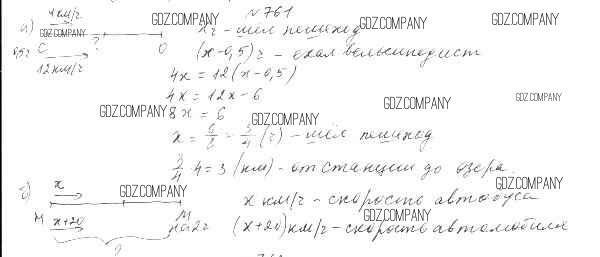 №761
а) 4 км/ч GDZ.COMPANY х ч - шёл пешеход GDZ.COMPANY
GDZ.COMPANY
0,5ч С ? О (х-0,5)ч - ехал велосипедист
12 км/ч GDZ.COMPANY
4х = 12(х-0,5)
4х = 12х - 6 GDZ.COMPANY GDZ.COMPANY
GDZ.COMPANY 8х = 6 GDZ.COMPANY
х = 6/8 = 3/4 (ч) - шёл пешеход GDZ.COMPANY
3/4 · 4 = 3 (км) - от станции до озера.
б) х GDZ.COMPANY GDZ.COMPANY
х км/ч - скорость автобуса
М х+20 М GDZ.COMPANY
на 2ч (х+20) км/ч - скорость автомобиля
?